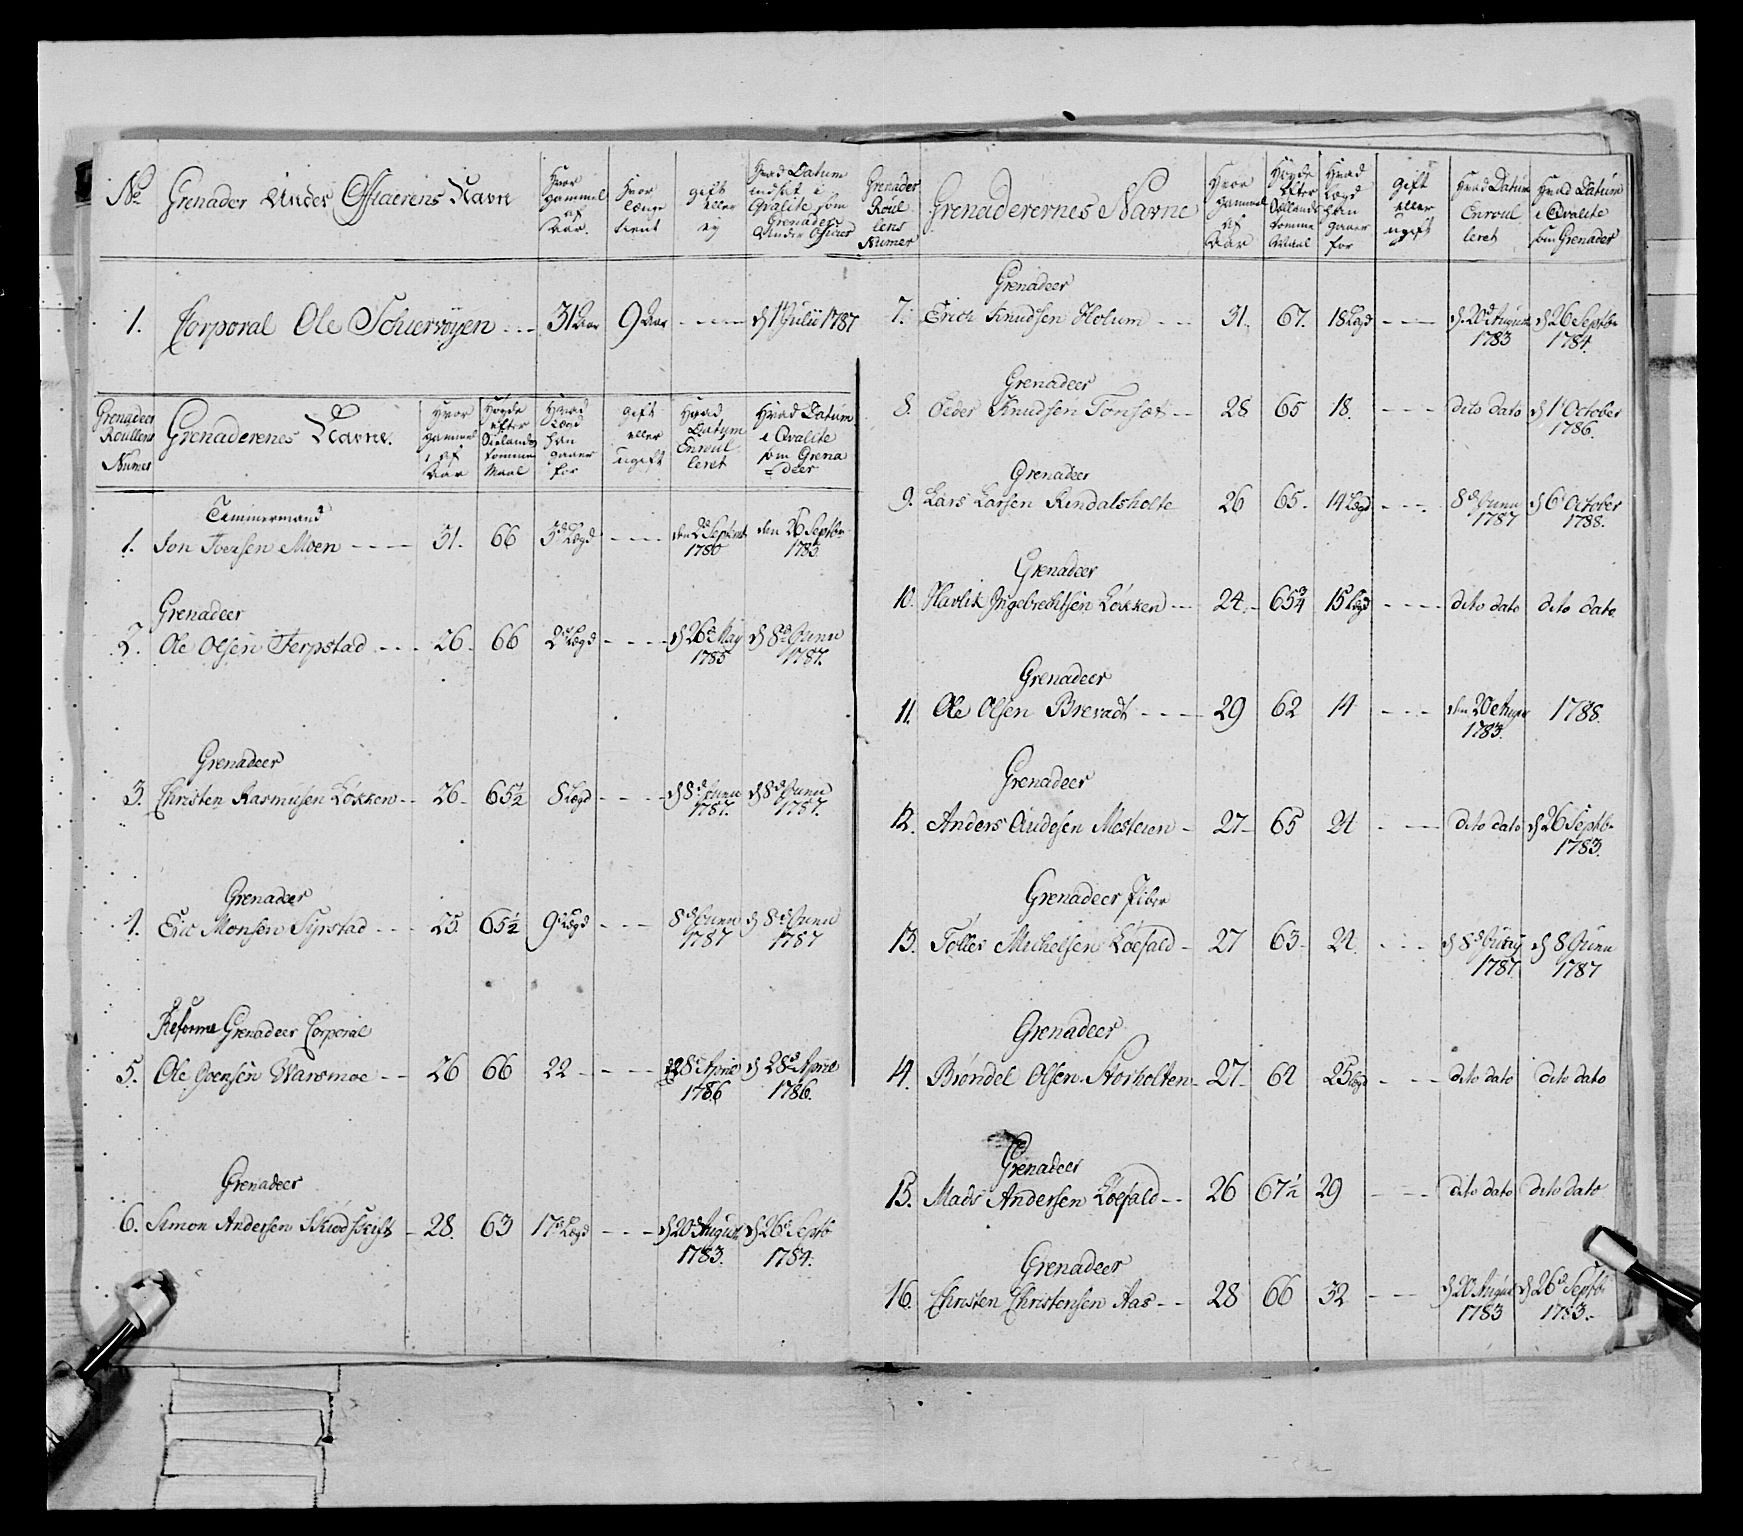 No. Grenader Under Officerens Navn Hvor gammel af Aar. Hvor længe tient gift eller ej Hvad Datum indsat i Qvalite som Grenadeer Under Officier
1. Corporal Ole Schiervøyen 31 Aar 9 Aar d 1t Julii 1787
Grenadeer Roullens Numer Grenaderenes Navne. Hvor gammel af Aar Høyde efter Sielands tomme Maal Hvad Lægd han gaaer for gift eller ugift Hvad Datum Enroulleret Hvad Datum i Qvalite som Grenadeer
Timmermand
1. Jon Iversen Moen 31. 66 5d Lægd den 2d Septembr 1780 den 26 Septbr 1783.
Grenadeer
2. Ole Olsen Ferpstad 26. 66 2d Lægd d 26d May 1785 d 8d Junii 1787.
Grenadeer
3. Christen Rasmusen Løkken 26. 65½ 8 Lægd d 8d Junii 1787. d 8d Junii 1787.
Grenadeer
4. Eric Monsen Syrstad 25. 65½ 9 Lægd 8d Junii 1787 d 8d Junii 1787
Reforme Grenadeer Corporal
5. Ole Goensen Warsmoe 26 66 22 28d Aprie 1786 d 28d Aprie 1786.
Grenadeer
6. Simon Andersen Skiodskift 28. 63 17d Lægd d 20d August 1783. d 26d Septb 1784.
Grenader Roullens Numer Grenaderernes Navne Hvor gammel af Aar Høyde Efter Siællands tomme Maal Hvad Lægd han gaaer for gift eller ugift Hvad Datum Enroulleret Hvad Datum i Qvalite som Grenadeer
Grenadeer
7. Erich Knudsen Holum 31. 67. 18 Lægd d. 20d August 1783 d 26 Septbr 1784.
Grenadeer
8. Peder Knudsen Tonsæt 28 65 18. dito dato d 1t October 1786.
Grenadeer
9. Lars Larsen Rindalsholte 26 65. 14 Lægd 8d Junii 1787 d 6t October 1788.
Grenadeer
10. Havlik Ingebrechtsen Løkken 24. 65¾ 15 Lægd dito dato dito dato
Grenadeer
11. Ole Olsen Brevadt 29 62 14 den 20d August 1783. 1788.
Grenadeer
12. Anders Audesen Mesteren 27 65 24 dito dato d 26 Septbr 1783.
Grenadeer Piber
13. Toller Michelsen Løefald 27 63 24 d 8d Juny 1787 d 8 Junii 1787
Grenadeer
14. Brøndel Olsen Storholten 27. 62 25 Lægd dito dato dito dato
Grenadeer
15. Mads Andersen Løefald 26 67½ 29 dito dato dito dato
Grenadeer
16. Christen Christensen Aas 28 66 32 d 20 August 1783 d 26d Septb. 1783.